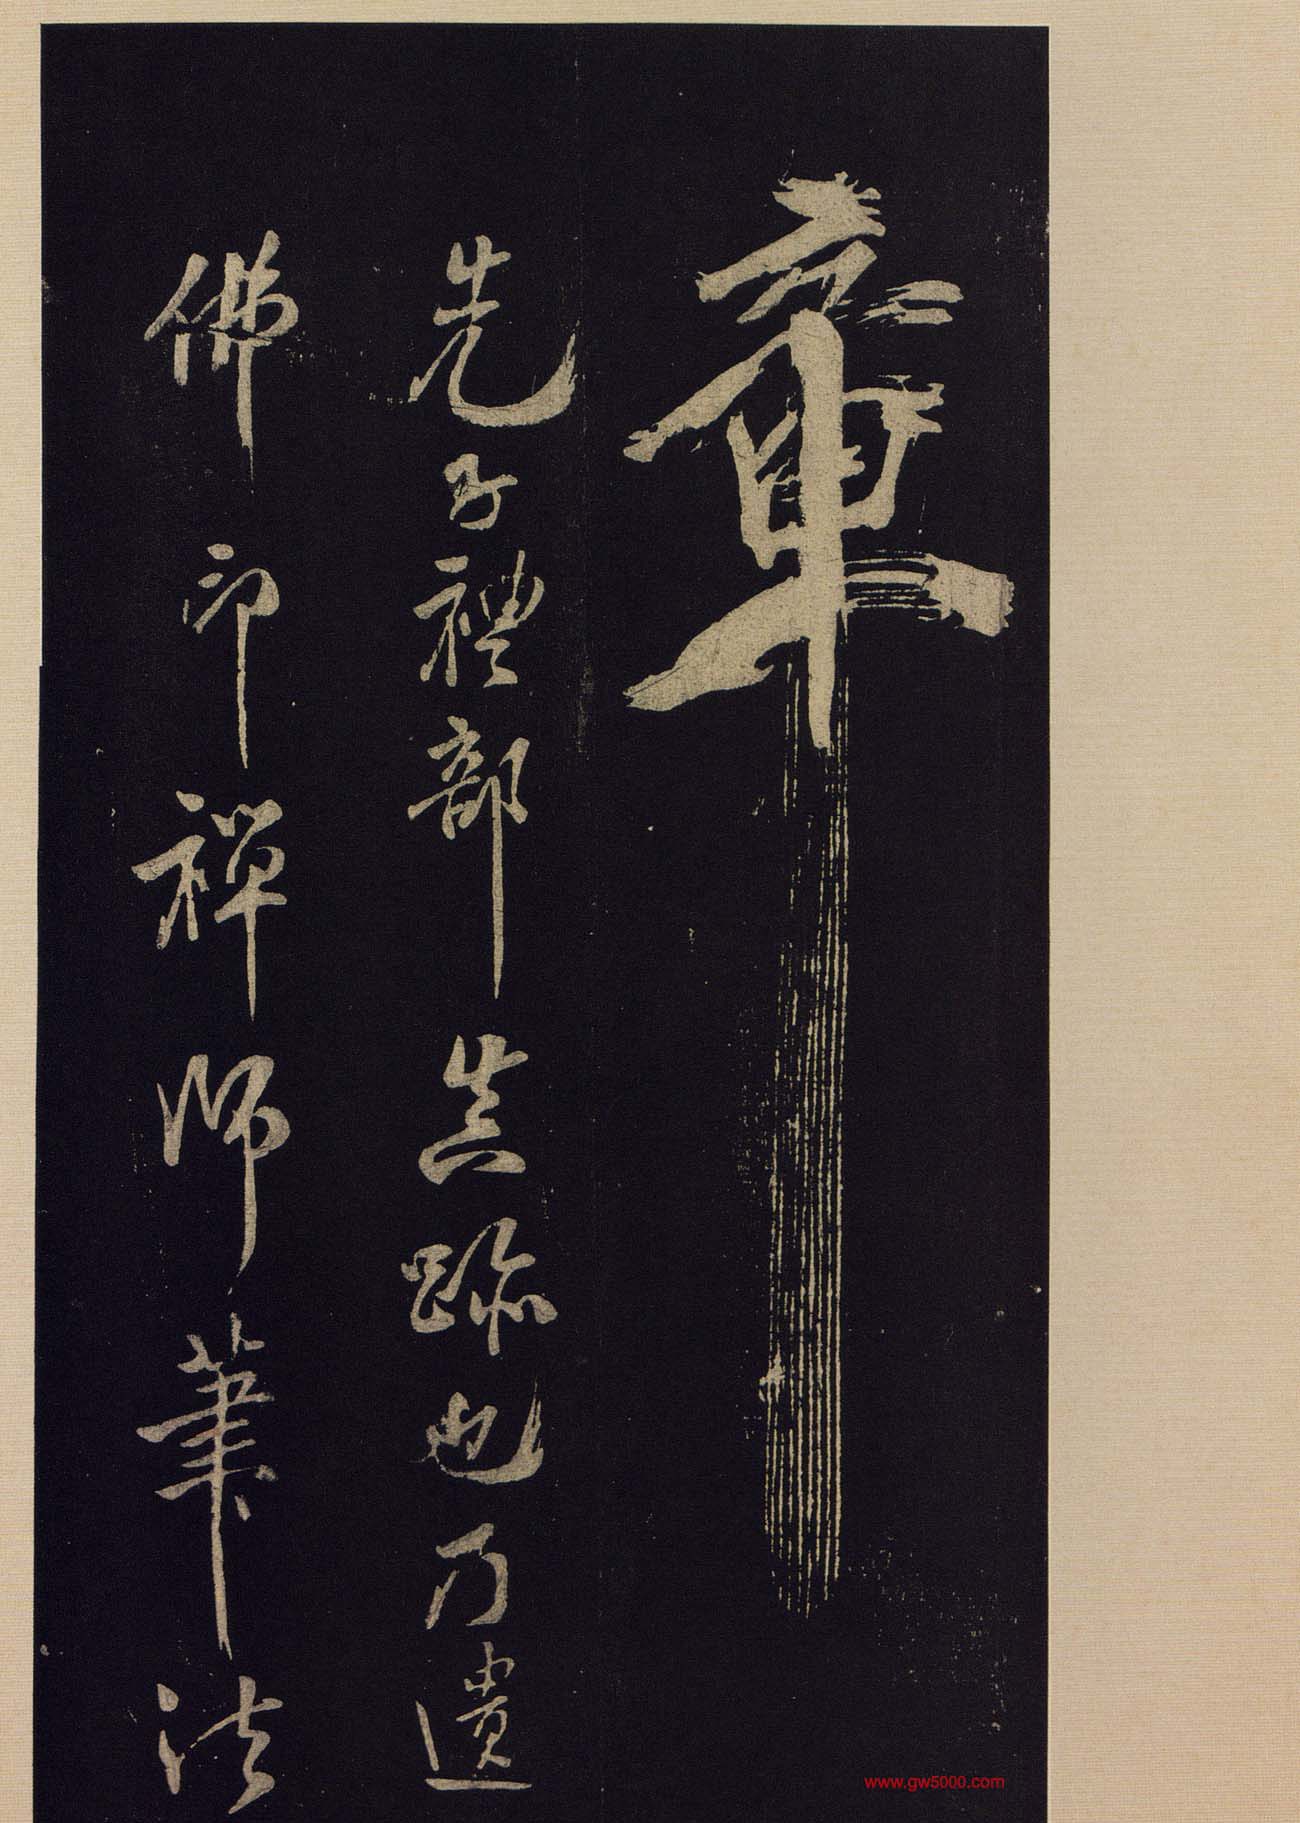 章
先子禮部真跡也乃遺
佛印禪師筆法
www.gw5000.com